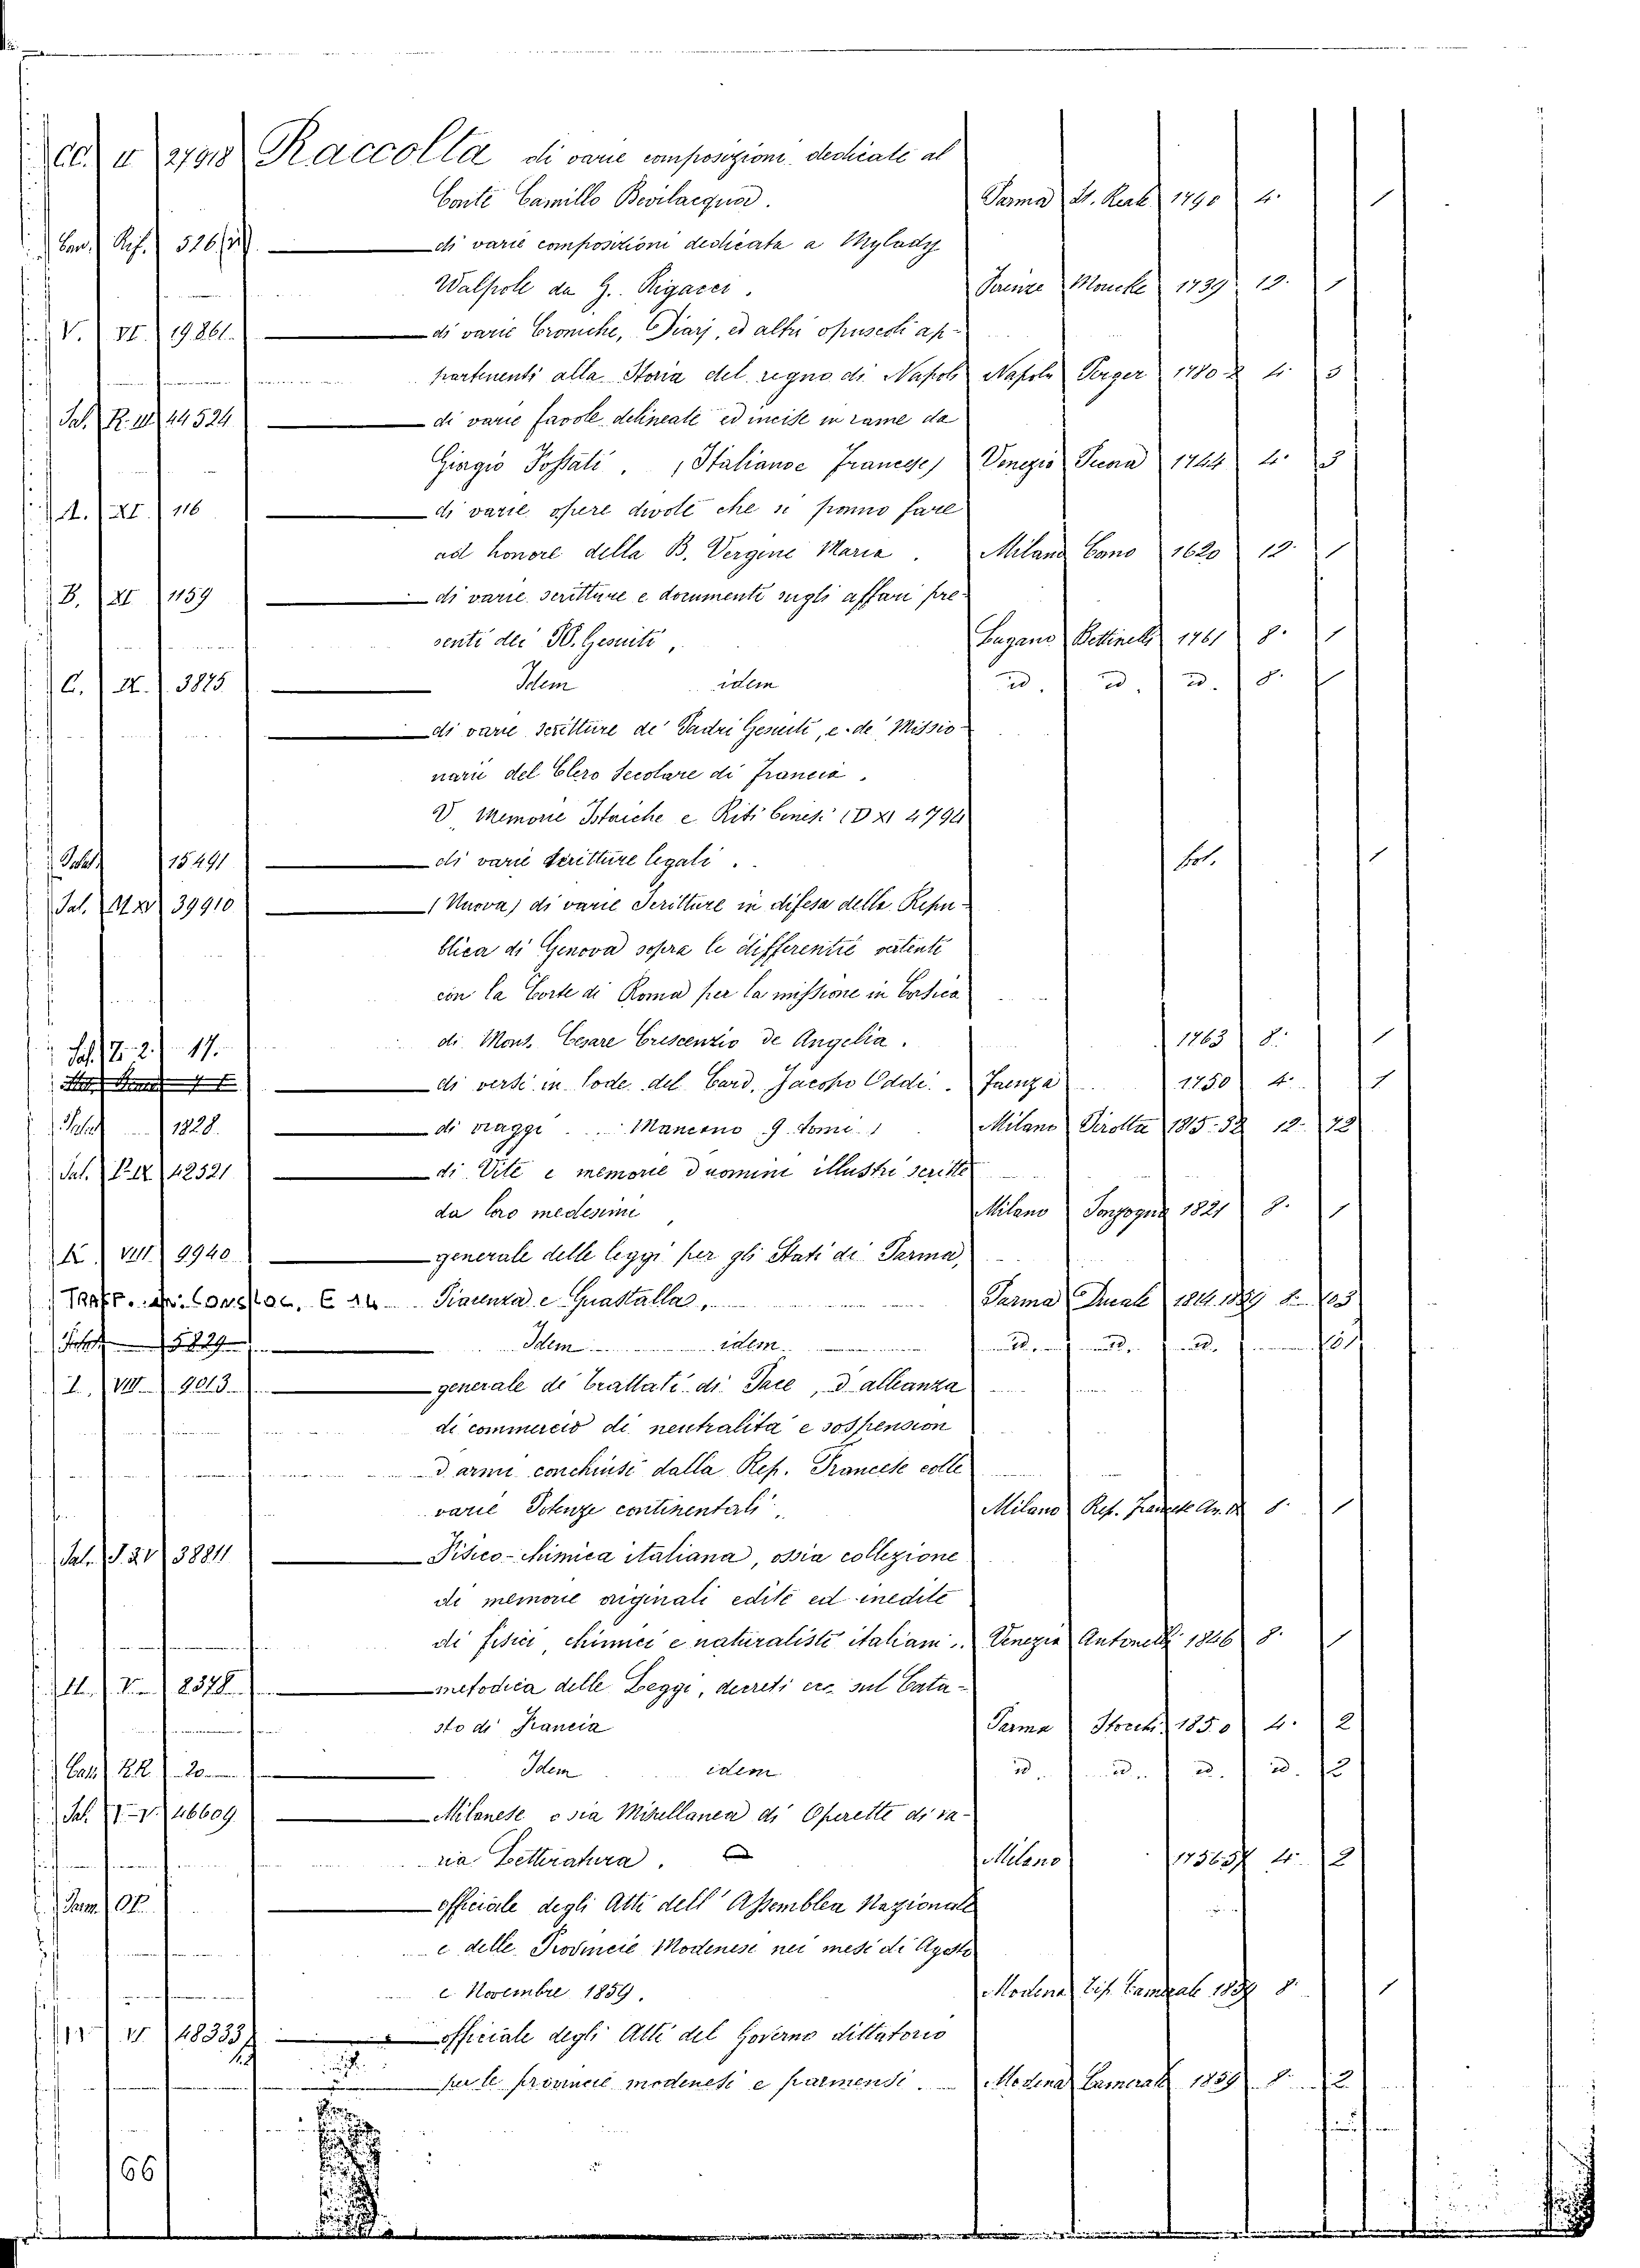 CC. II 27918 Raccolta di varie composizioni dedicate al
Conte Camillo Bevilacqua. Parma 1790 4. 1
Can. Rif. 526 di varie composizioni dedicata a Mylady
Walpole da G. Rigacci. Firenze Moucke 1739 12. 1
V. VI. 19861. di varie Croniche, Diarj, ed altri opuscoli ap-
partenenti alla Storia del regno di Napoli Napoli Perger 1780-2 4. 5
Sal. R. III 44524 di varie favole delineate ed incise in rame da
Giorgio Fossati. (Italiano e Francese) Venezia Pecora 1744 4. 3
A. XI. 116 di varie opere divote che si ponno fare
ad honore della B. Vergine Maria. Milano Cano 1620 12. 1
B. XI 1159 di varie scritture e documenti sugli affari pre-
senti dei PP. Gesuiti, Lugano Bettinelli 1761 8. 1
C. IX. 3875 Idem idem id. id. id. 8. 1
di varie scritture de' Padri Gesuiti, e de' Missio-
narii del Clero Secolare di Francia.
V. Memorie Istoriche e Riti Cinesi (D XI 4794
15491 di varie scritture legali. fol. 1
Sal. M. XV 39910 (Nuova) di varie Scritture in difesa della Repu-
blica di Genova sopra le differentie vertenti
con la Corte di Roma per la missione in Corsica
di Mons. Cesare Crescenzio de Angelis. 1763 8. 1
Sal. Z. 2. 17.
di versi in lode del Card. Jacopo Oddi. Faenza 1750 4. 1
1828. di viaggi. Mancano 9 tomi) Milano Pirotta 1815-32 12. 72
Sal. P. IX 42521 di Vite e memorie d'uomini illustri scritte
da loro medesimi Milano Sonzogno 1821 8. 1
K. VIII. 9940 generale delle leggi per gli Stati di Parma,
Traff. Consloc. E 14 Piacenza e Guastalla, Parma Ducale 1814.1829 8. 103
5829 Idem idem id. id. id.
I. VIII. 9013 generale de' Trattati di Pace, d'alleanza
di commercio di neutralità e sospension
d'armi conchiusi dalla Rep. Francese colle
varie Potenze continentali, Milano Rep. Francese An. IX 8. 1
Sal. I. XV 38811 Fisico-chimica italiana, ossia collezione
di memorie originali edite ed inedite
di fisici, chimici e naturalisti italiani. Venezia Antonelli 1846 8. 1
H. V. 8378 metodica delle Leggi, decreti ecc. sul Cata-
sto di Francia Parma Stocchi 1850 4. 2
Cat. RR. 20 Idem idem id. id. id. id. 2
Sal. V. V. 46609 Milanese o sia Miscellanea di Operette di va-
ria Letteratura. Milano 1756.57 4. 2
Jam. OP. officiale degli Atti dell' Assemblea Nazionale
e delle Provincie Modenesi nei mesi di Agosto
e Novembre 1859. Modena Tip. Camerale 1859 8. 1
48333 officiale degli Atti del Governo dittatorio
per le provincie modenesi e parmensi. Modena Camerale 1859 8. 2
66